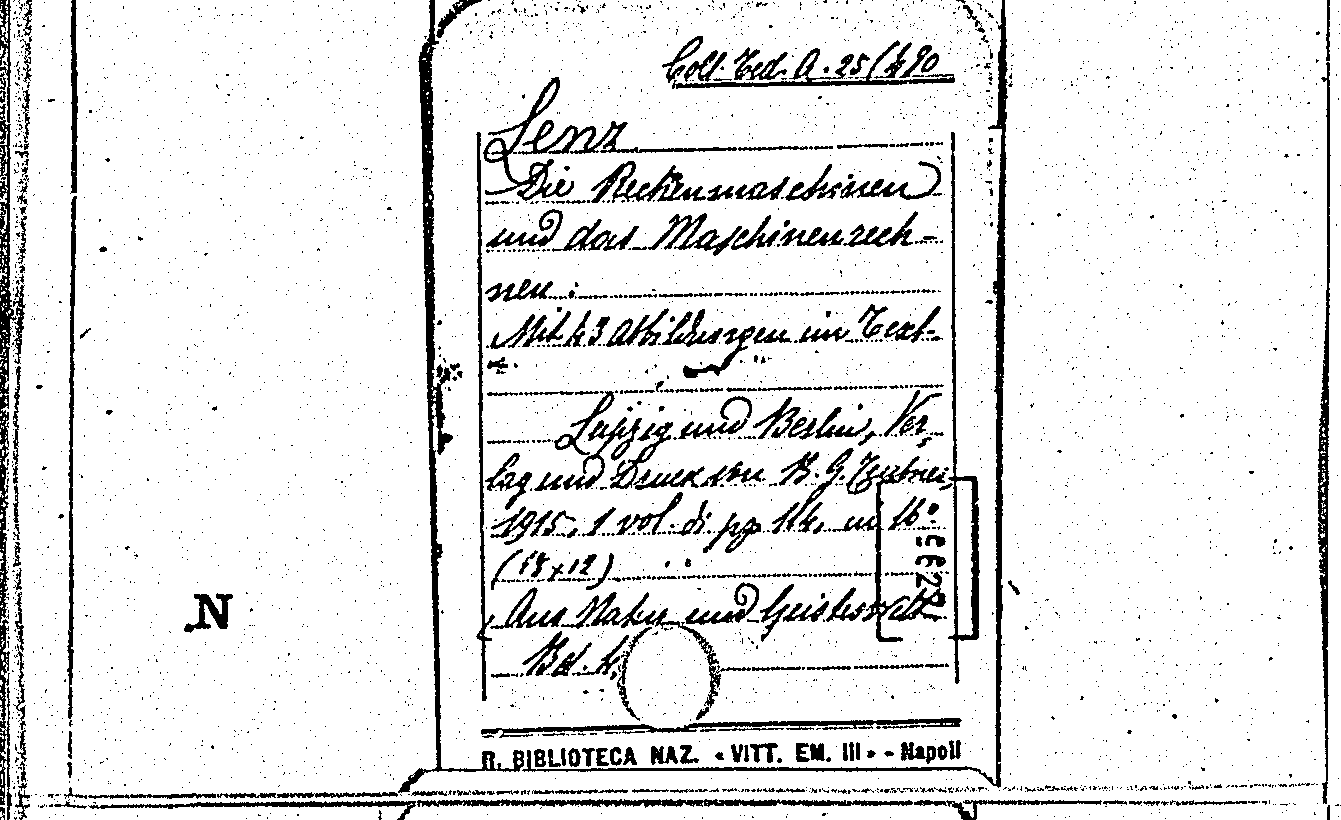 Coll. Ted. A. 25 (490
Lenz
Die Rechenmaschinen
und das Maschinenrech-
nen:
Mit 43 Abbildungen im Text.
Leipzig und Berlin, Ver,
lag und Druck von B. G. Teubner,
1915, 1 vol. di pp 114, in 16°
(18x12)
Aus Natur und Geisteswelt
Bd. 4
N
R. BIBLIOTECA NAZ. «VITT. EM. III» - Napoli